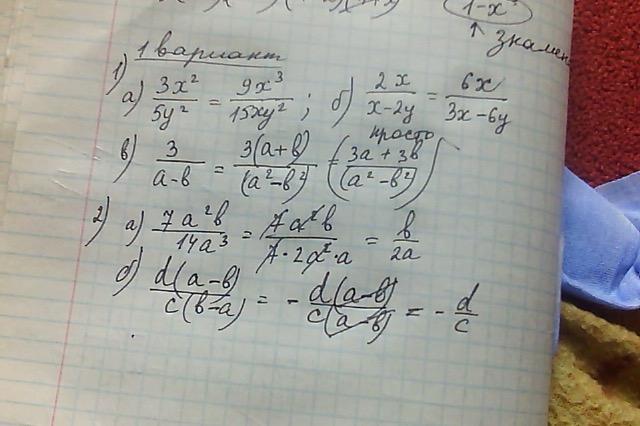 1-x
↑ Знамен
1 вариант
1) а) 3x²/5y² = 9x³/15xy² ; б) 2x/x-2y = 6x/3x-6y
просто
в) 3/a-b = 3(a+b)/(a²-b²) (= 3a+3b/(a²-b²))
2) а) 7a²b/14a³ = 7a²b/7·2a²·a = b/2a
б) d(a-b)/c(b-a) = - d(a-b)/c(a-b) = - d/c